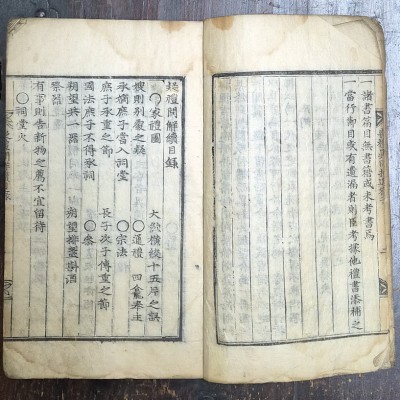 一諸書篇目無書籍或未考書焉
一當行節目或有遺漏者則考據他禮書添補之
疑禮問解續目錄
○家禮圖 大斂橫絞十五片之誤
則別處之疑 ○通禮 四龕奉主
承嫡庶子當入祠堂 ○宗法
庶子承重之節 長子次子傳重之節
國法庶子不得承祧 ○祭
朔望共一器 朔望排
祭器
有事則告新物之薦不宜留待
○祠堂火